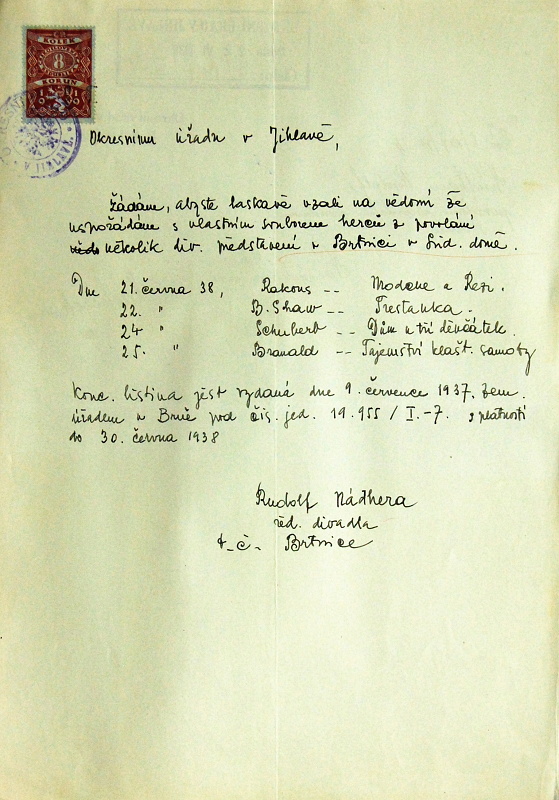 KOLEK
8
KORUN
V JIHLAVĚ
Okresnímu úřadu v Jihlavě,
Žádám, abyste laskavě vzali na vědomí že
uspořádám s vlastním souborem herců z povolání
několik div. představení v Brtnici v Lid. domě.
Dne 21. června 38, Rakous -- Modche a Rézi.
22. " B. Shaw -- Trestanka.
24 " Schubert -- Dům u tří děvčátek.
25. " Branald -- Tajemství klášt. samoty
Konc. listina jest vydaná dne 9. července 1937. zem.
úřadem v Brně pod čís. jed. 19.955 / I.-7. s platností
do 30. června 1938
Rudolf Nádhera
řed. divadla
t. č. Brtnice